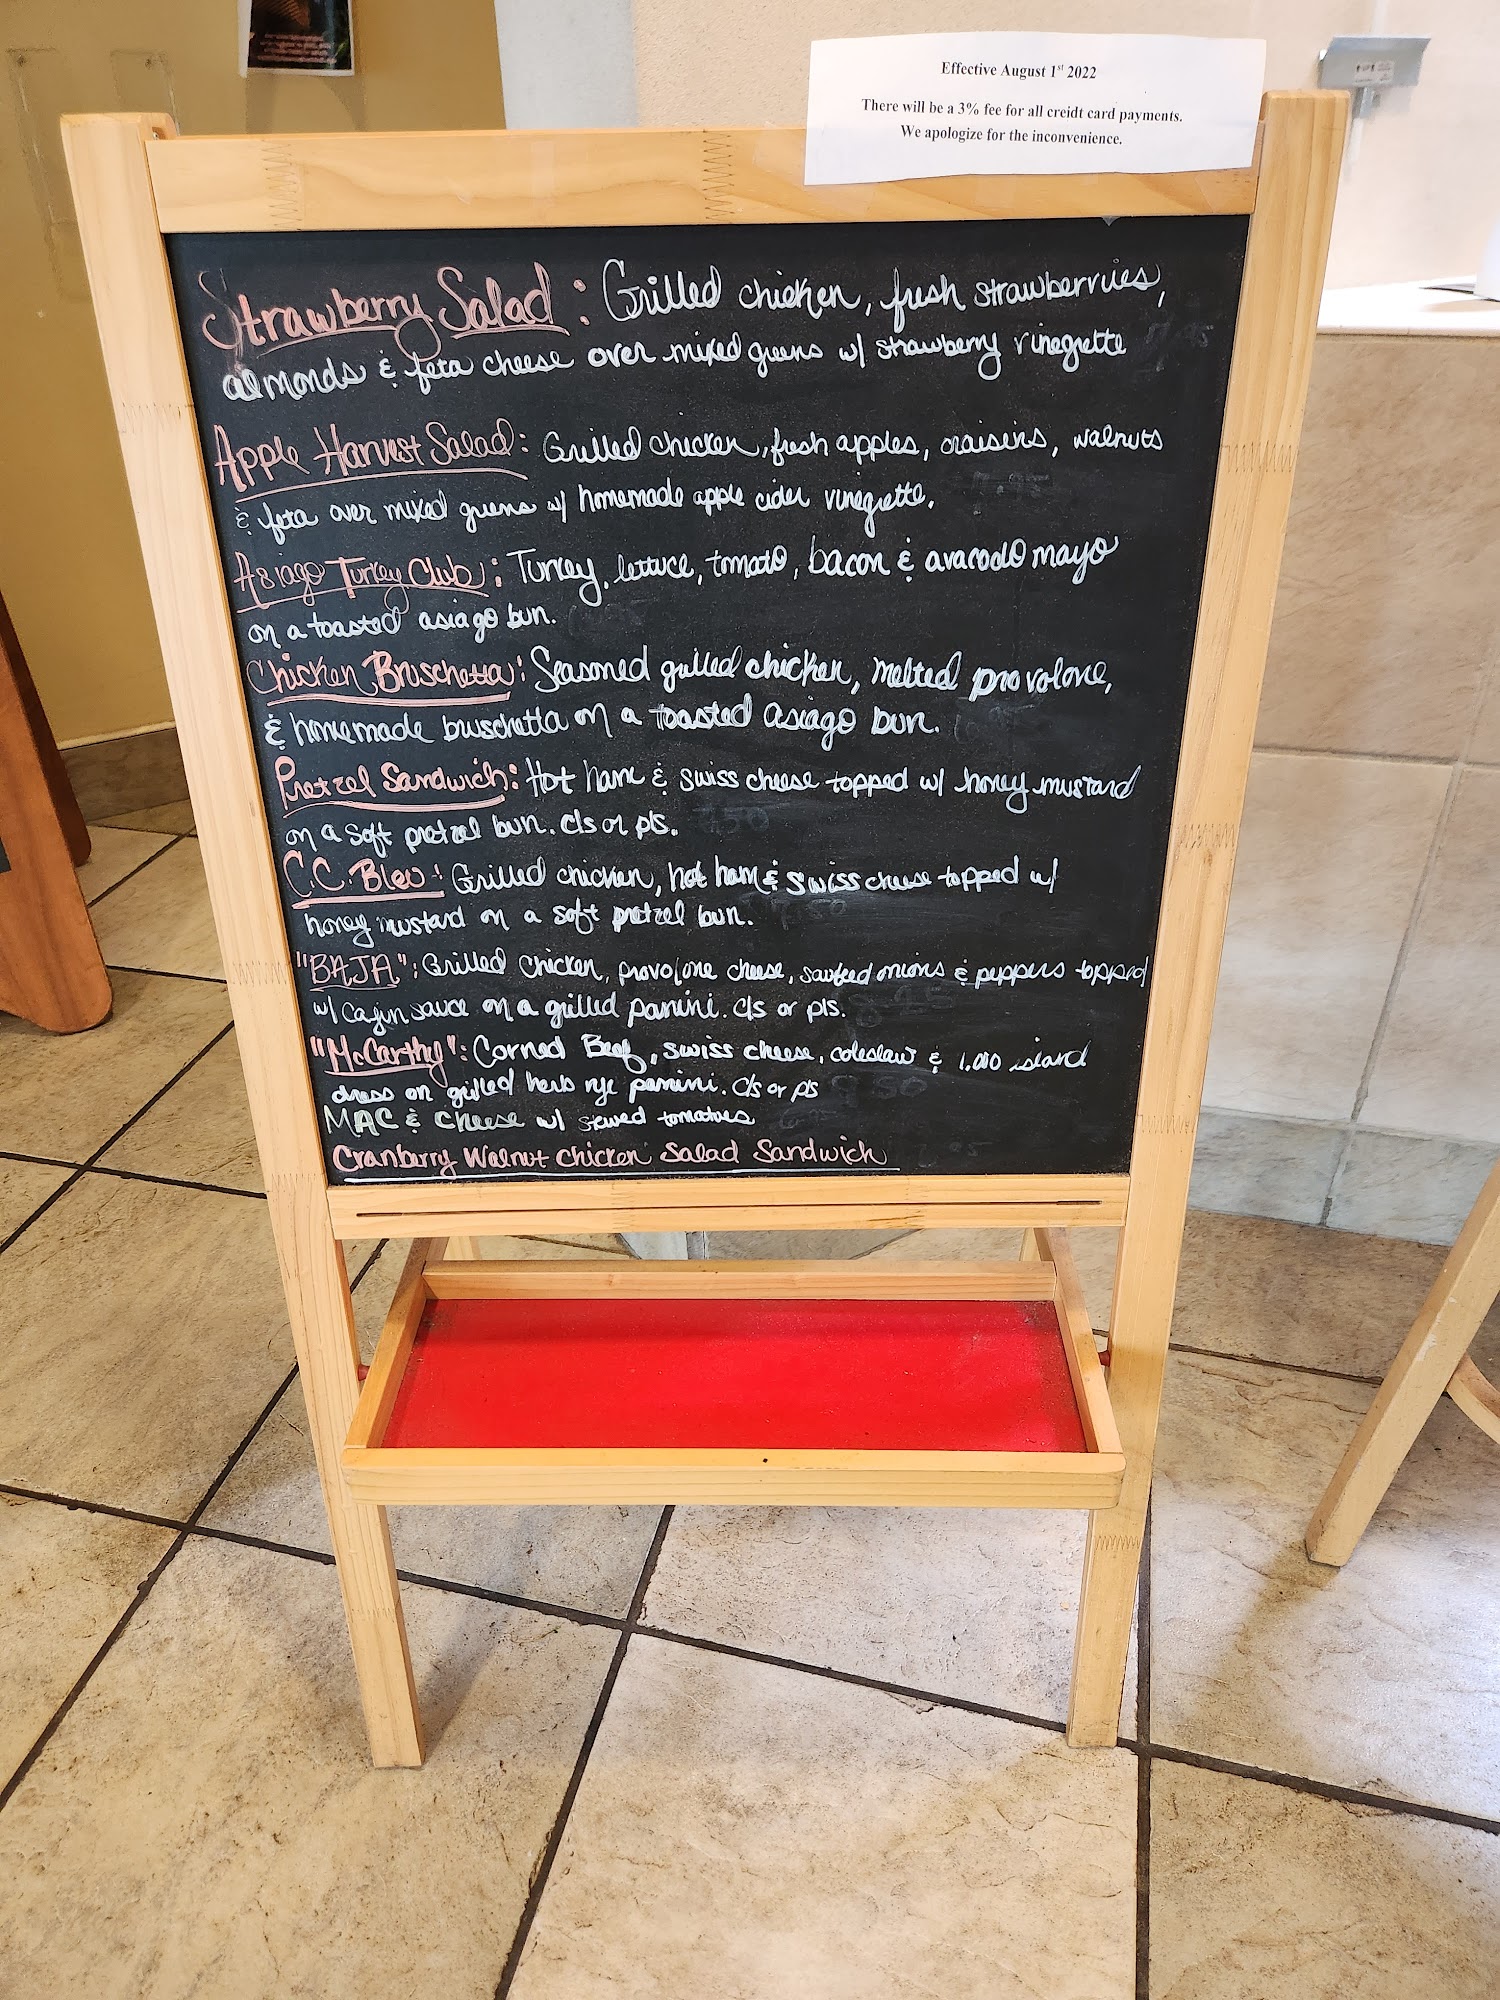 Effective August 1st 2022
There will be a 3% fee for all creidt card payments.
We apologize for the inconvenience.
Strawberry Salad: Grilled chicken, fresh strawberries,
almonds & feta cheese over mixed greens w/ strawberry vinegrette
Apple Harvest Salad: Grilled chicken, fresh apples, craisins, walnuts
& feta over mixed greens w/ homemade apple cider vinegrette.
Asiago Turkey Club: Turkey, lettuce, tomato, bacon & avacado mayo
on a toasted asiago bun.
Chicken Bruschetta: Seasoned grilled chicken, melted provolone,
& homemade bruschetta on a toasted asiago bun.
Pretzel Sandwich: Hot ham & swiss cheese topped w/ honey mustard
on a soft pretzel bun. c/s or p/s. 7.50
C.C. Bleu: Grilled chicken, hot ham & swiss cheese topped w/
honey mustard on a soft pretzel bun. 7.50
"BAJA": Grilled chicken, provolone cheese, sauteed onions & peppers topped
w/ cajun sauce on a grilled panini. c/s or p/s.
"McCarthy": Corned Beef, swiss cheese, coleslaw & 1,000 island
dress on grilled herb rye panini. c/s or p/s 9.50
MAC & Cheese w/ stewed tomatoes
Cranberry Walnut chicken Salad Sandwich